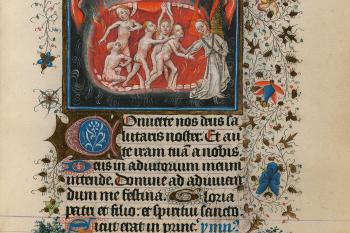 Converte nos deus sa
lutaris noster. Et au
te iram tuā a nobis
Deus in adiutorium meum
intende. Domine ad adiuvan
dum me festina. Gloria
patri et filio: et spiritui sancto.
Sicut erat in princ. ymn9